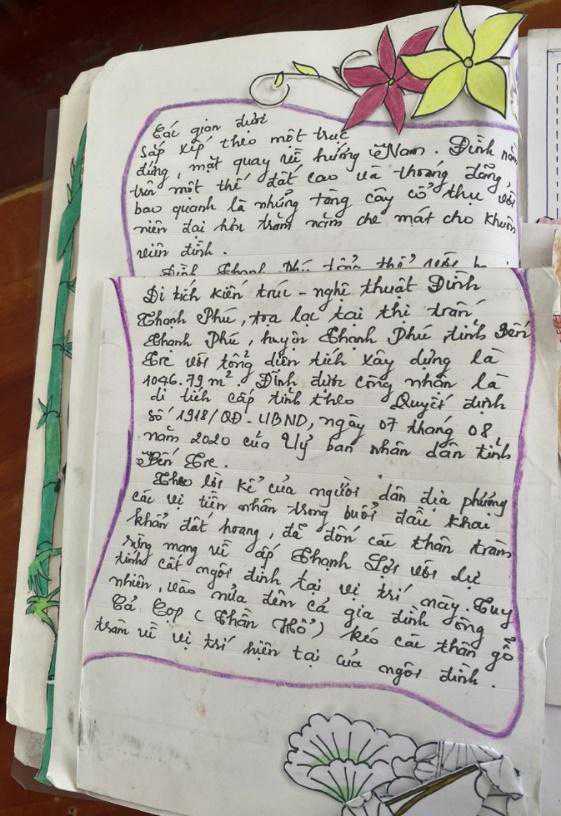 Các gian được
sắp xếp theo một trục
đứng, mặt quay về hướng Nam. Đình nằm
trên một thế đất cao và thoáng đãng,
bao quanh là những tầng cây cổ thụ với
niên đại hơn trăm năm che mát cho khuôn
viên đình.
Đình Thạnh Phú tổng thể
Di tích kiến trúc - nghệ thuật Đình
Thạnh Phú, tọa lạc tại thị trấn
Thạnh Phú, huyện Thạnh Phú, tỉnh Bến
Tre với tổng diện tích xây dựng là
1046.79 m². Đình được công nhận là
di tích cấp tỉnh theo Quyết định
số 1918/QĐ-UBND, ngày 07 tháng 08
năm 2020 của Uỷ ban nhân dân tỉnh
Bến Tre.
Theo lời kể của người dân địa phương
các vị tiền nhân trong buổi đầu khai
khẩn đất hoang, đã đốn các thân tràm
rừng mang về ấp Thạnh Lợi với dự
tính cất ngôi đình tại vị trí này. Tuy
nhiên, vào nửa đêm cả gia đình ông
Cả Cọp (Thần Hổ) kéo các thân gỗ
tràm về vị trí hiện tại của ngôi đình.